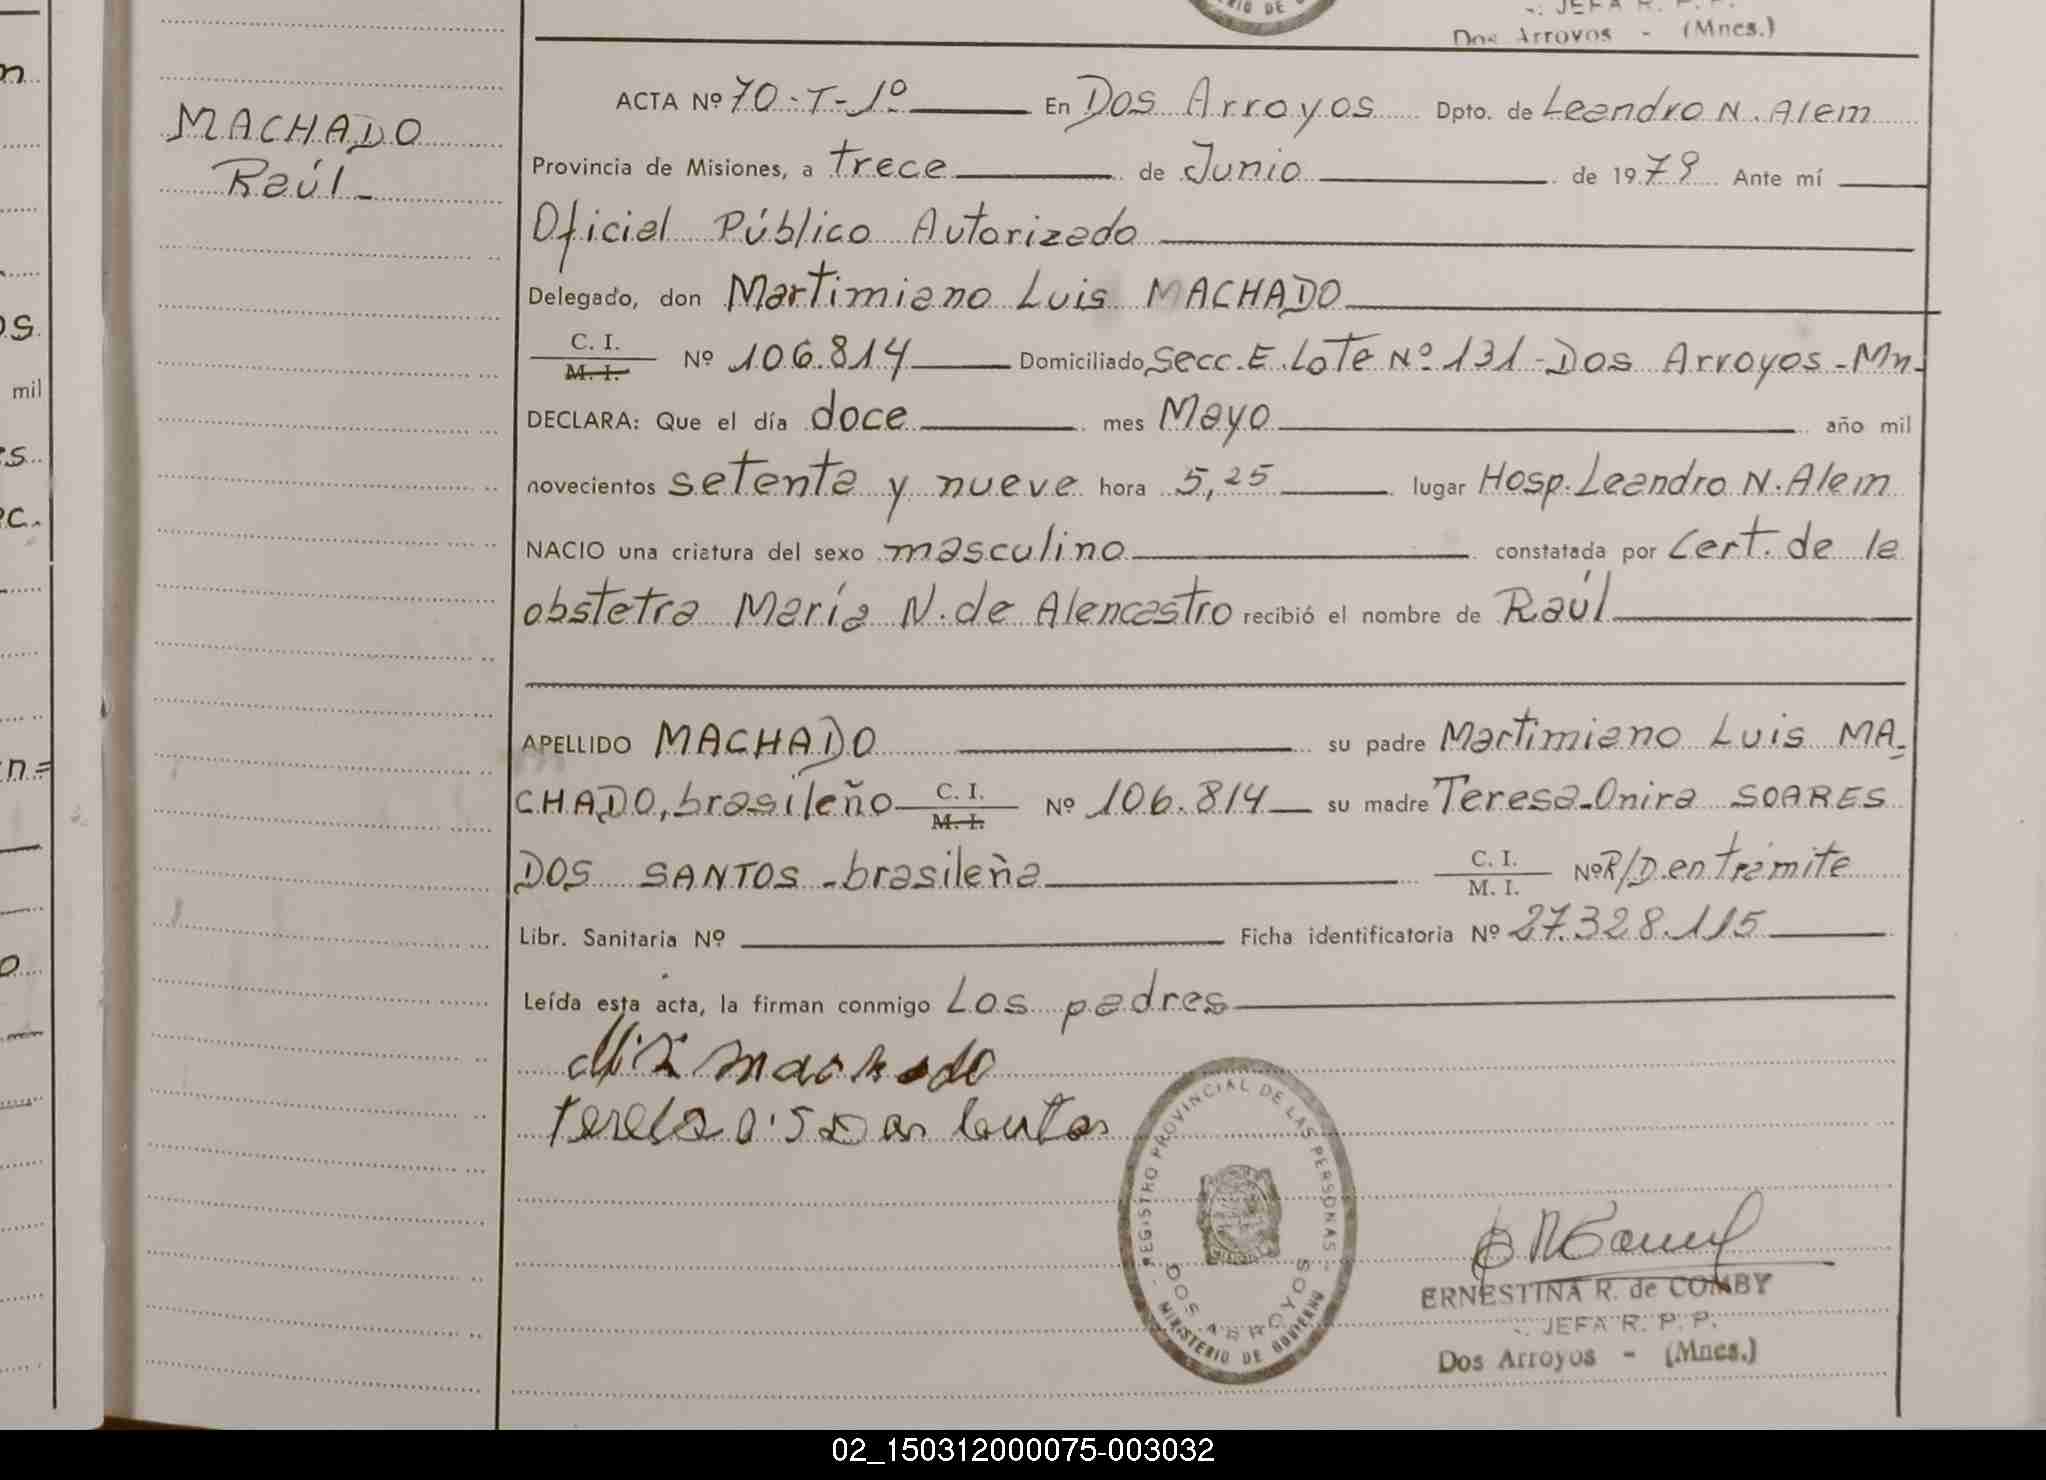 JEFA R. P. P.
Dos Arroyos - (Mnes.)
MACHADO
Raúl -
ACTA Nº 70-T-1º En Dos Arroyos Dpto. de Leandro N. Alem
Provincia de Misiones, a trece de Junio de 1979 Ante mí
Oficial Público Autorizado
Delegado, don Martimiano Luis MACHADO
C. I.
M. I. Nº 106.814 Domiciliado Secc. E. Lote Nº 131 - Dos Arroyos - Mn-
DECLARA: Que el día doce mes Mayo año mil
novecientos setenta y nueve hora 5,25 lugar Hosp. Leandro N. Alem
NACIO una criatura del sexo masculino constatada por Cert. de la
obstetra María N. de Alencastro recibió el nombre de Raúl
APELLIDO MACHADO su padre Martimiano Luis MA-
CHADO, brasileño C. I. M. I. Nº 106.814 su madre Teresa Onira SOARES
DOS SANTOS - brasileña C. I. M. I. Nº R/D. en trámite
Libr. Sanitaria Nº Ficha identificatoria Nº 27.328.115
Leída esta acta, la firman conmigo Los padres
machado
REGISTRO PROVINCIAL DE LAS PERSONAS
DOS ARROYOS
MINISTERIO DE GOBIERNO
ERNESTINA R. de COMBY
JEFA R. P. P.
Dos Arroyos - (Mnes.)
mil
02_150312000075-003032